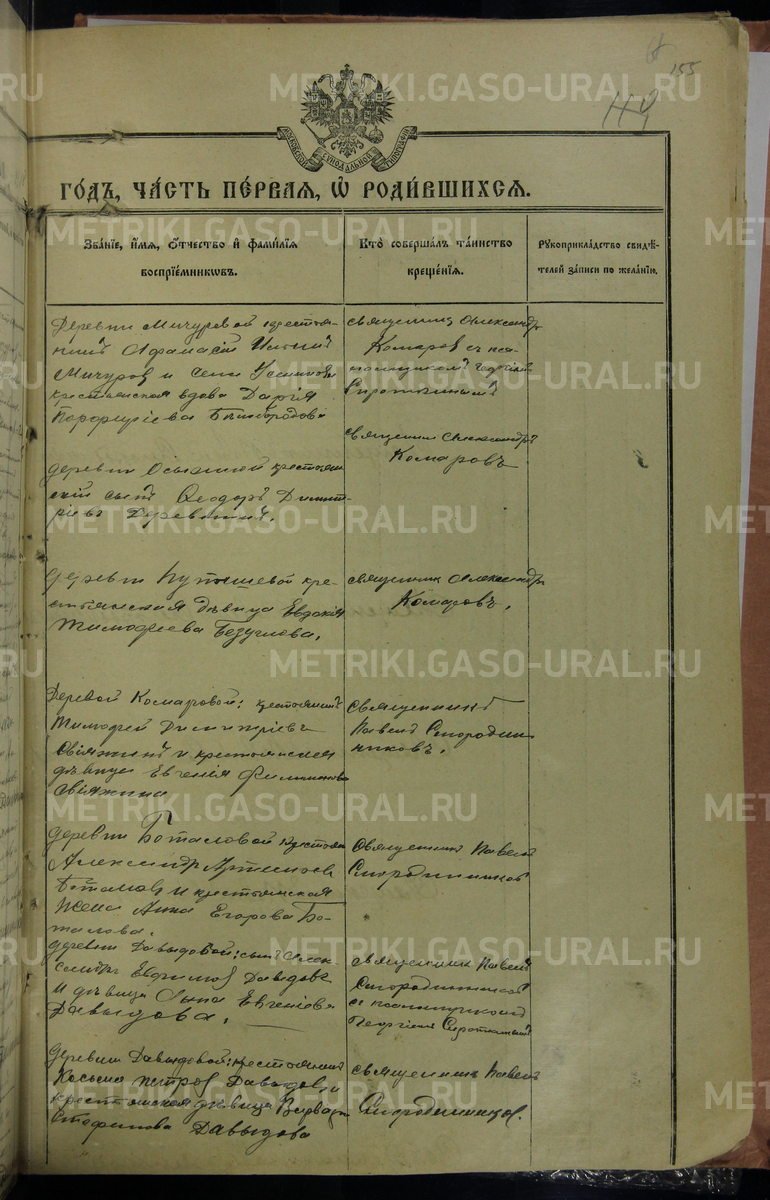 155
МОСКОВСКОЙ СѴНОДАЛЬНОЙ ТИПОГРАФІИ
ГО́ДЪ, ЧА́СТЬ ПЕ́РВАЯ, Ѽ РОДИ́ВШИХСЯ.
Зва́ніе, и́мя, о́тчество и фами́лія
воспріе́мниковъ.
Кто̀ соверша́лъ та́инство
креще́нія.
Рукоприкла́дство свидѣ́-
телей за́писи по жела́нію.
Деревни Мичуровой крестья-
нинъ Афанасій
Мичуров и села
крестьянская вдова Дарія
Порфиріева Белобородова
священник Александръ
Комаров с пса-
ломщикомъ Георгіем
Сироткинымъ
деревни крестьян
скій сынъ Ѳеодоръ Димит
ріевъ
священник Александръ
Комаровъ
деревни кре-
стьянская дѣвица Евдокия
Тимофеева Безуглова.
священник Александръ
Комаровъ.
Деревой Комаровой: крестьянинъ
Тимофей Димитріевъ
Свяжинъ и крестьянская
дѣвица Евгенія Филимонова
Свяжина
священникъ
Павелъ Смородин
никовъ.
деревни Боталовой крестьян
Александр Артемьев
Боталов и крестьянская
жена Анна Егорова Бо-
талова.
Священникъ Павелъ
Смородинников
деревни Давыдовой: сынъ Алек-
сандръ Евфимов Давыдов
и дѣвица Анна Евгеніева
Давыдова.
священник Павелъ
Смородинников
с псаломщиком
Георгіем Сироткинымъ
деревни Давыдовой: крестьянинъ
Косьма Петров Давыдов и
крестьянская дѣвица Варвара
Стефанова Давыдова
священникъ Павелъ
Смородинников.
METRIKI.GASO-URAL.RU